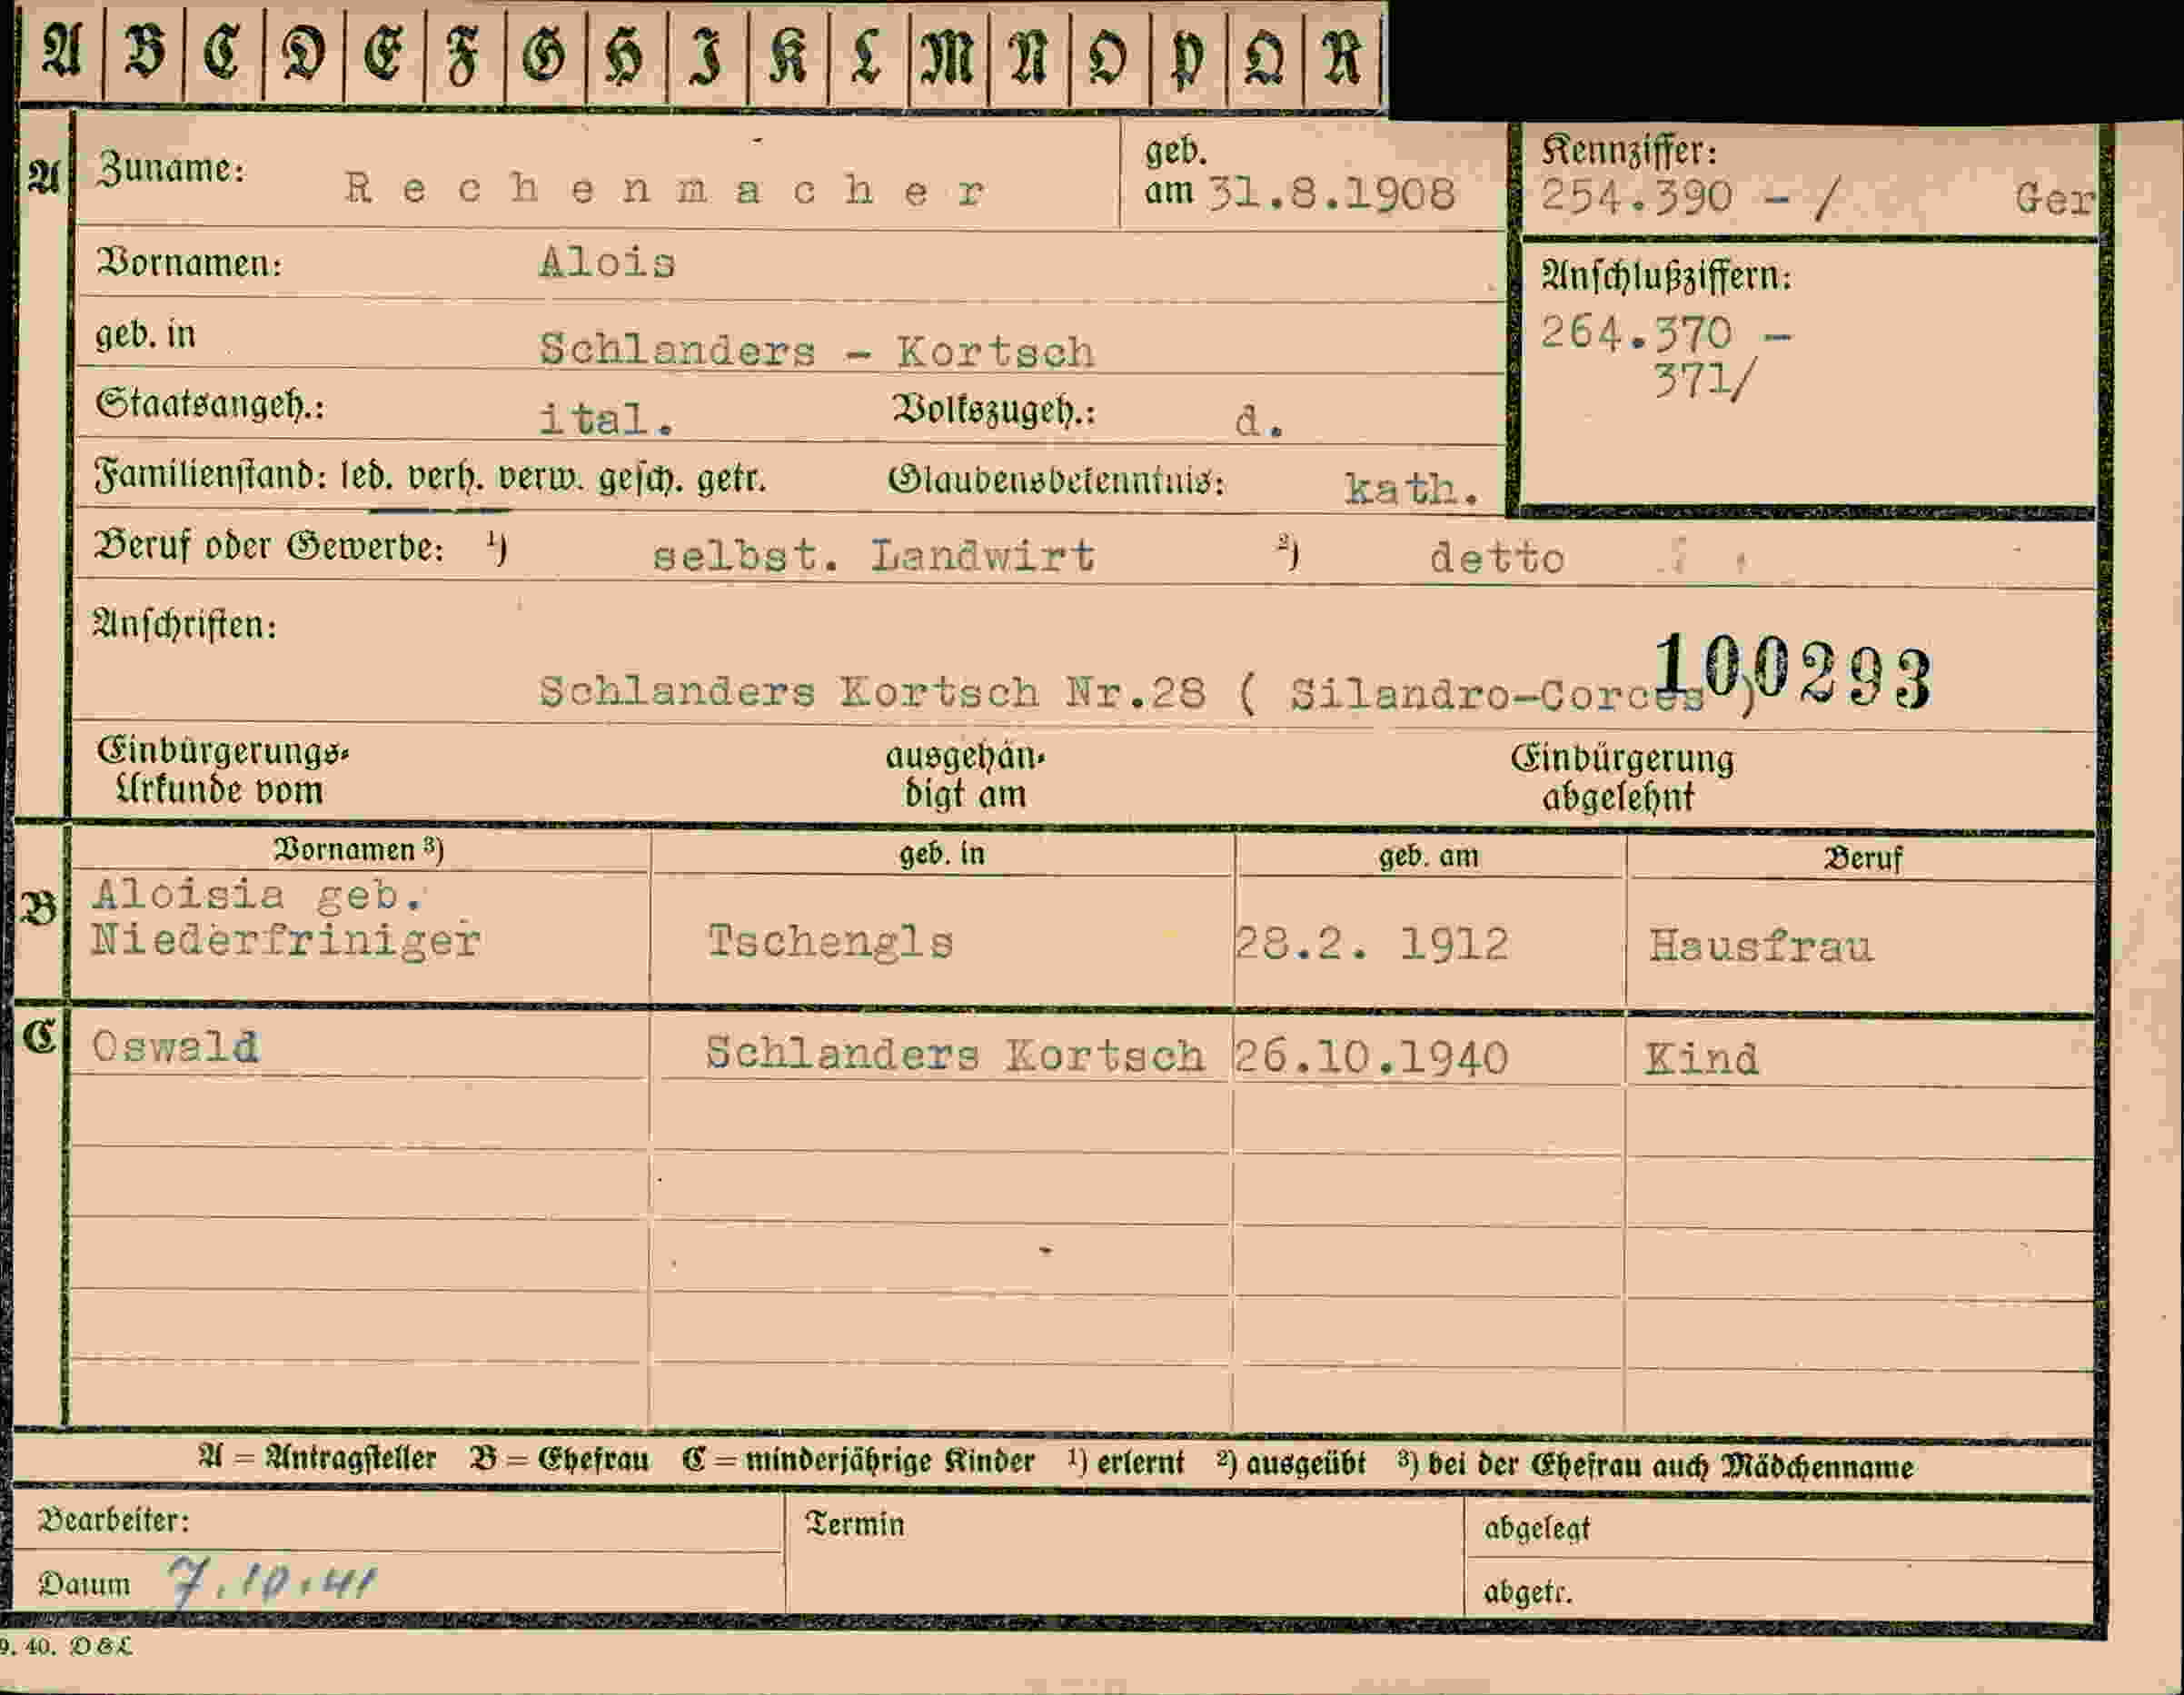 A B C D E F G H I K L M N O P Q R
A Zuname: Rechenmacher geb. am 31.8.1908
Kennziffer:
254.390 - / Ger
Vornamen: Alois
Anschlußziffern:
264.370 -
371/
geb. in Schlanders - Kortsch
Staatsangeh.: ital. Volkszugeh.: d.
Familienstand: led. verh. verw. gesch. getr. Glaubensbekenntnis: kath.
Beruf oder Gewerbe: ¹) selbst. Landwirt ²) detto
Anschriften:
100293
Schlanders Kortsch Nr.28 ( Silandro-Corces )
Einbürgerungs-Urkunde vom ausgehändigt am Einbürgerung abgelehnt
Vornamen ³) geb. in geb. am Beruf
B Aloisia geb.
Niederfriniger Tschengls 28.2. 1912 Hausfrau
C Oswald Schlanders Kortsch 26.10.1940 Kind
A = Antragsteller B = Ehefrau C = minderjährige Kinder ¹) erlernt ²) ausgeübt ³) bei der Ehefrau auch Mädchenname
Bearbeiter: Termin abgelegt
Datum 7.10.41 abgetr.
9. 40. D&L